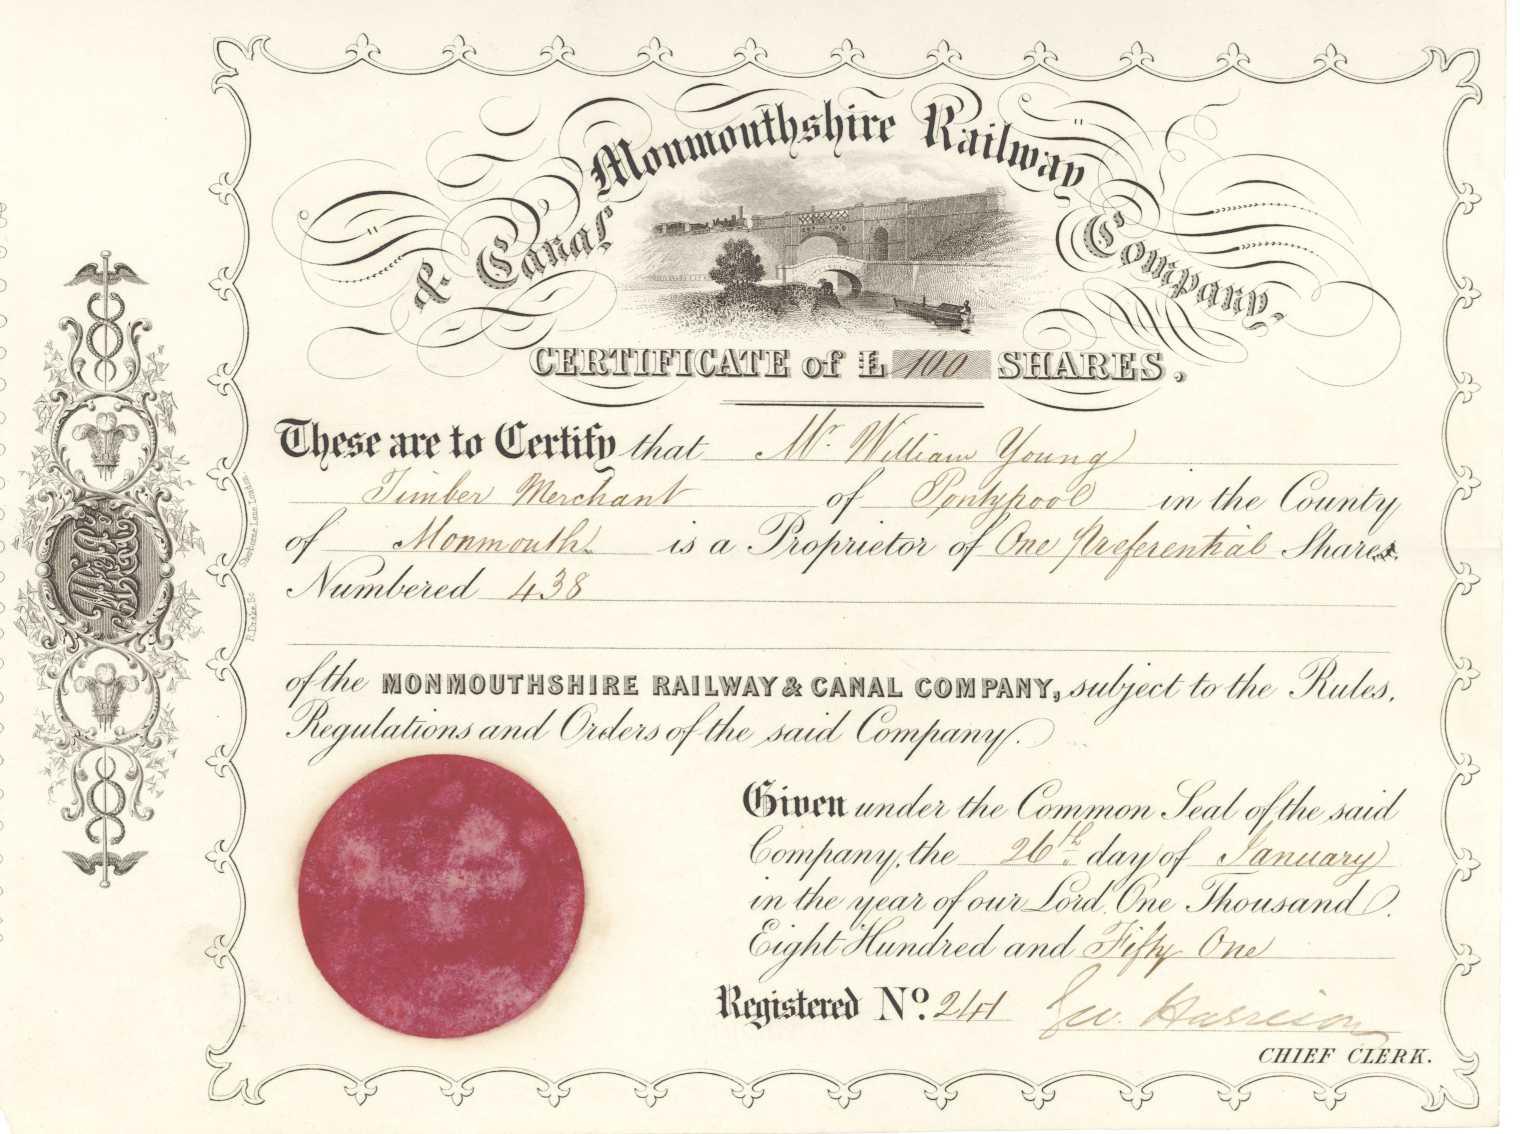 Monmouthshire Railway
& Canal Company,
CERTIFICATE of £ 100 SHARES,
These are to Certify that Mr. William Young
Timber Merchant of Pontypool in the County
of Monmouth is a Proprietor of One Preferential Share
Numbered 438
of the MONMOUTHSHIRE RAILWAY & CANAL COMPANY, subject to the Rules,
Regulations and Orders of the said Company.
Given under the Common Seal of the said
Company, the 26th day of January
in the year of our Lord One Thousand
Eight Hundred and Fifty One
Registered No. 241 Geo. Harrison
CHIEF CLERK.
R. Drake Sc Sherborne Lane London